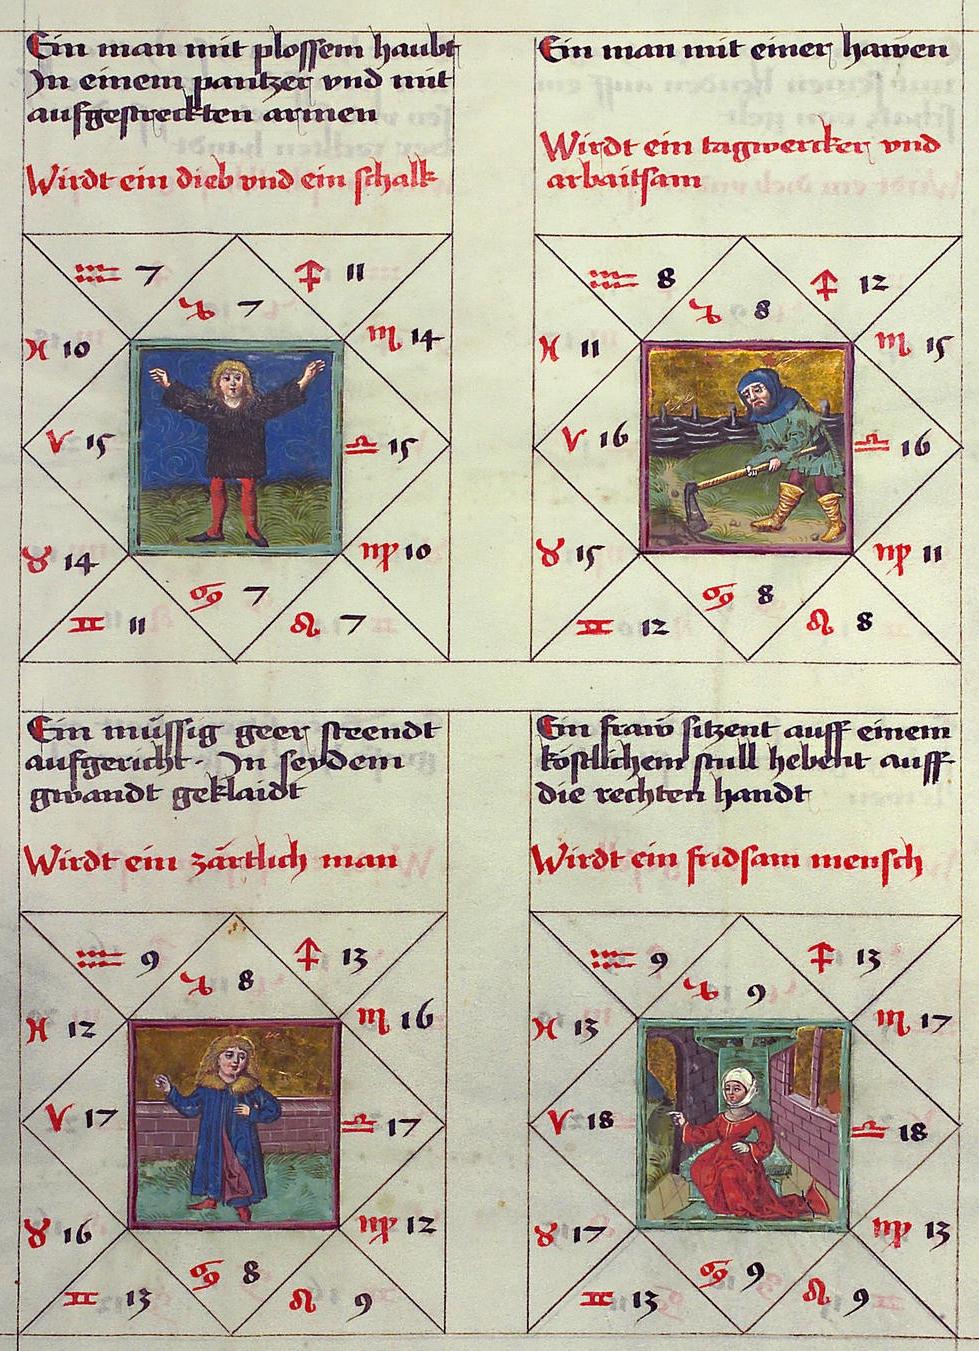 Ein man mit plossem haubt
In einem pantzer vnd mit
aufgestreckten armen
Wirdt ein dieb vnd ein schalk
♒ 7
♑ 7
♐ 11
♓ 10
♏ 14
♈ 15
♎ 15
♉ 14
♍ 10
♊ 11
♋ 7
♌ 7
Ein man mit einer hawen
Wirdt ein tagwercker vnd
arbaitsam
♒ 8
♑ 8
♐ 12
♓ 11
♏ 15
♈ 16
♎ 16
♉ 15
♍ 11
♊ 12
♋ 8
♌ 8
Ein müssig geer steendt
aufgericht · In seydem
gwandt geklaidt
Wirdt ein zärtlich man
♒ 9
♑ 8
♐ 13
♓ 12
♏ 16
♈ 17
♎ 17
♉ 16
♍ 12
♊ 13
♋ 8
♌ 9
Ein fraw sitzent auff einem
köstlichem stull hebent auff
die rechten handt
Wirdt ein fridsam mensch
♒ 9
♑ 9
♐ 13
♓ 13
♏ 17
♈ 18
♎ 18
♉ 17
♍ 13
♊ 13
♋ 9
♌ 9